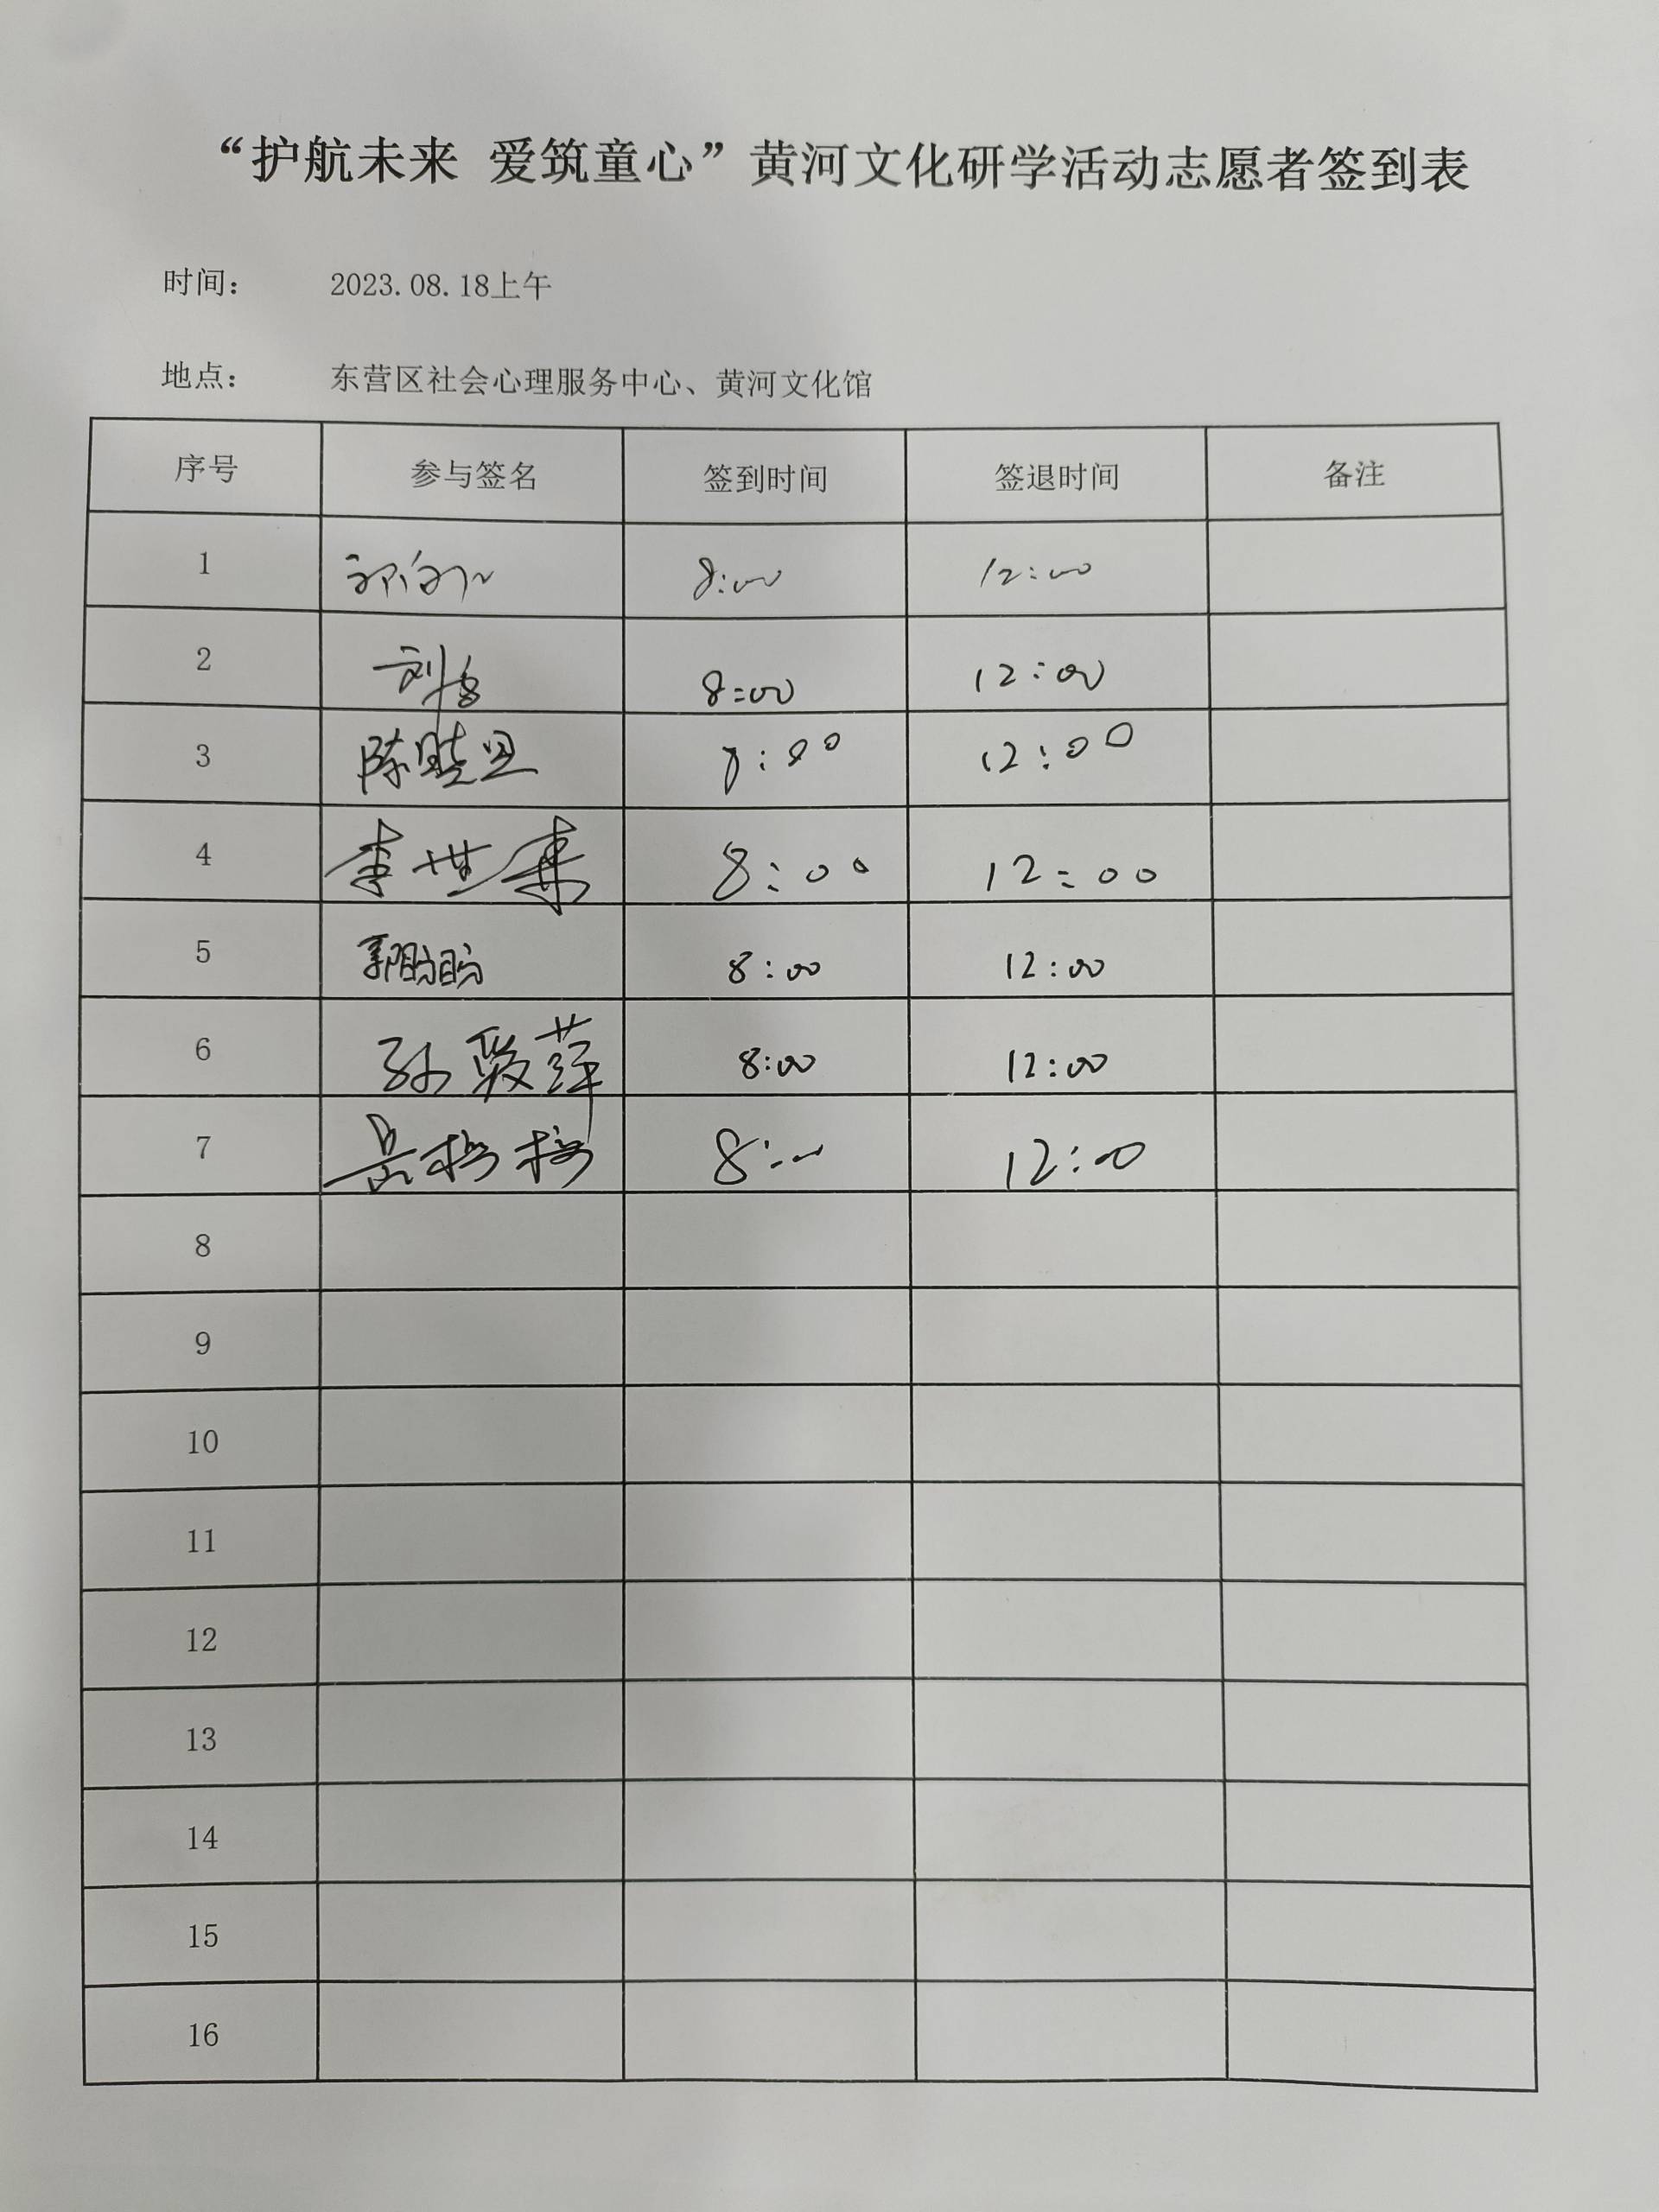 “护航未来 爱筑童心”黄河文化研学活动志愿者签到表
时间： 2023.08.18上午
地点： 东营区社会心理服务中心、黄河文化馆
序号 参与签名 签到时间 签退时间 备注
1 8:00 12:00
2 刘 8:00 12:00
3 陈晓思 8:00 12:00
4 李世来 8:00 12:00
5 郭盼盼 8:00 12:00
6 孙爱萍 8:00 12:00
7 8:00 12:00
8
9
10
11
12
13
14
15
16